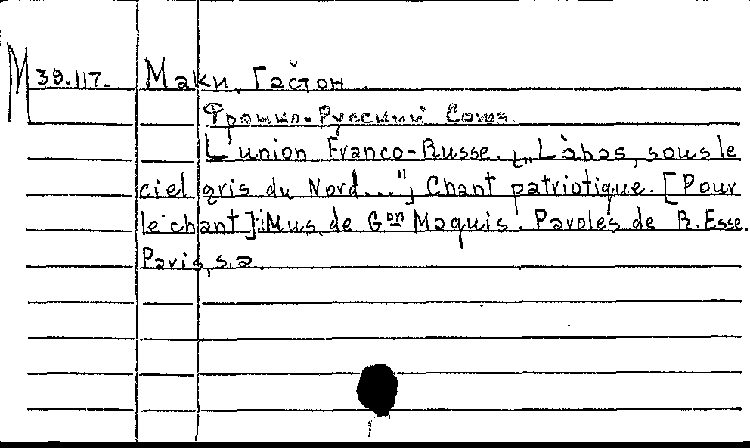 М 39.117. Маки, Гастон.
Франко-Русский Союз.
L'union Franco-Russe. [„Làbas, sous le
ciel gris du Nord..."] Chant patriotique. [Pour
le chant]. Mus. de Gon Maquis. Paroles de R. Esse.
Paris, s.a.